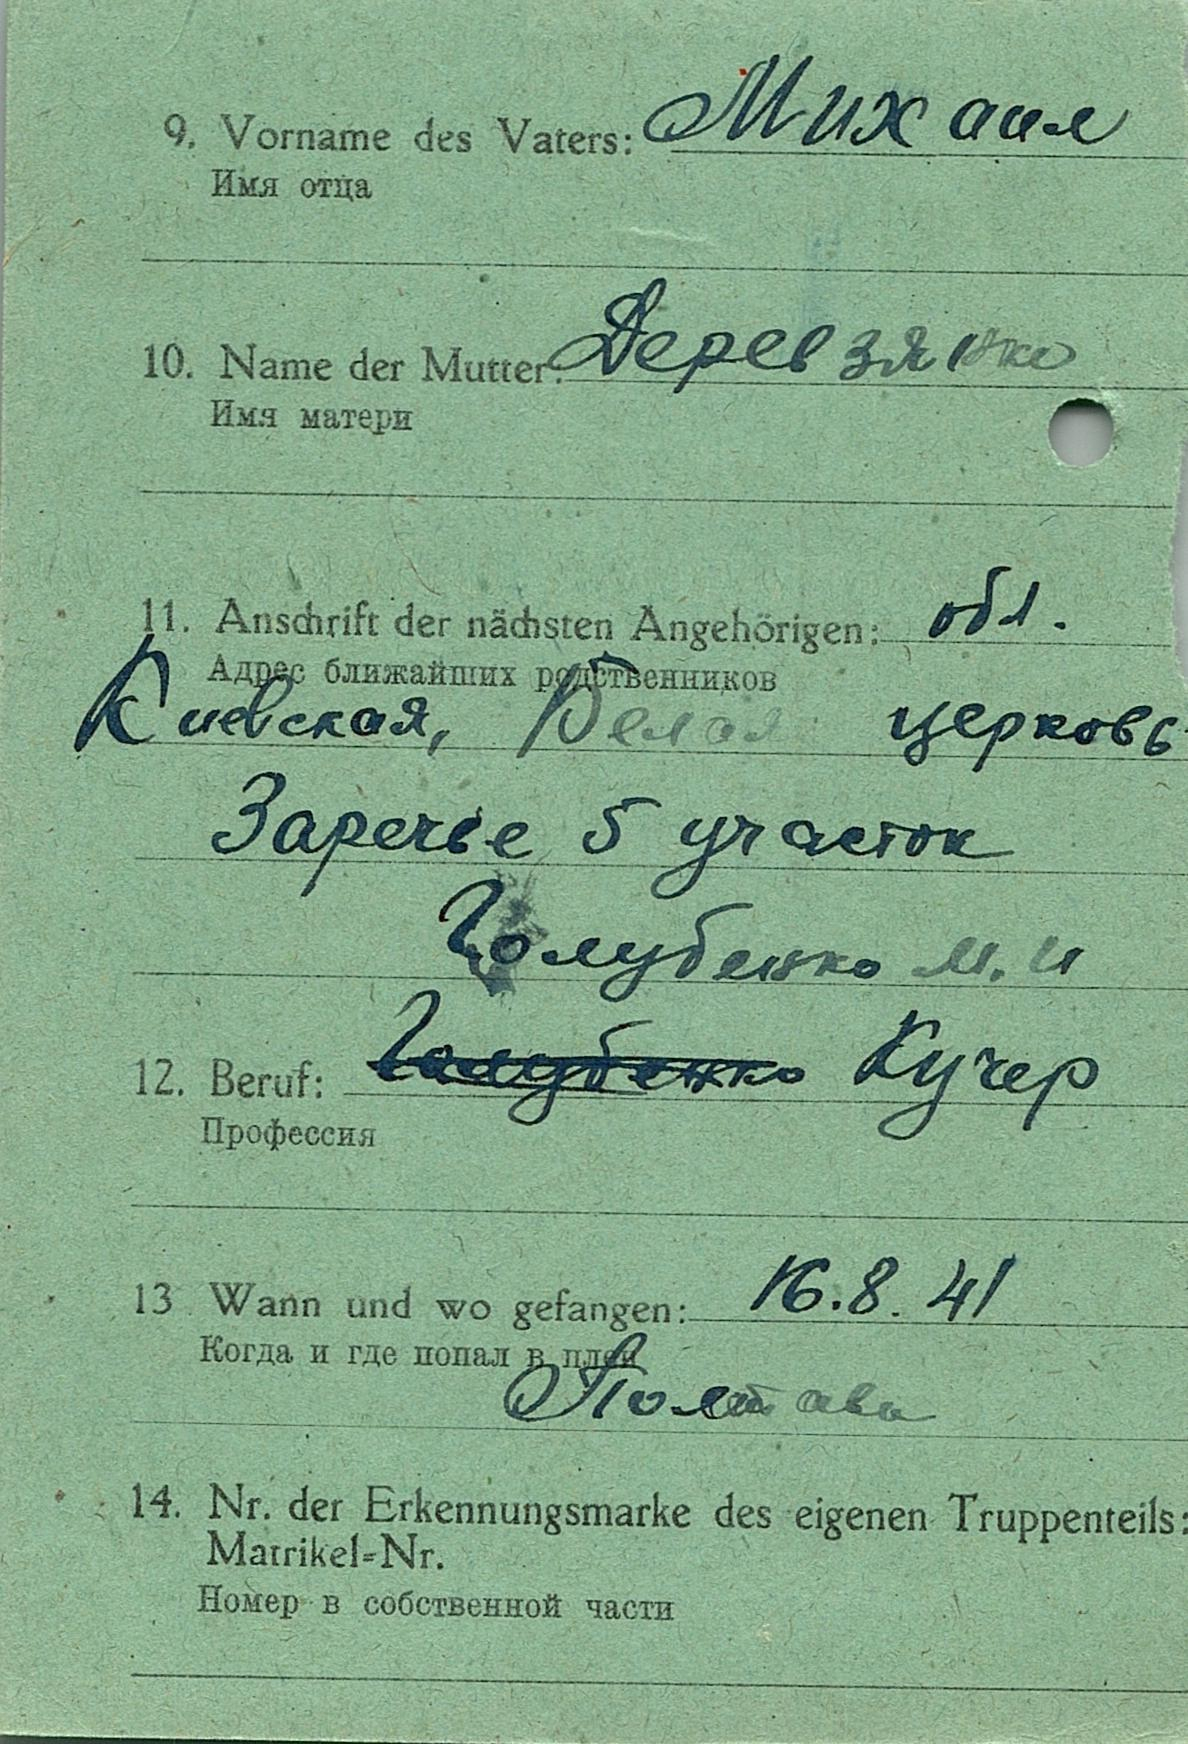 9. Vorname des Vaters: Михаил
Имя отца
10. Name der Mutter: Деревзянко
Имя матери
11. Anschrift der nächsten Angehörigen: обл.
Адрес ближайших родственников
Киевская, Белая церковь
Заречье 5 участок
Голубенко М. И
12. Beruf: Голубенко Кучер
Профессия
13 Wann und wo gefangen: 16.8.41
Когда и где попал в плен
Полтава
14. Nr. der Erkennungsmarke des eigenen Truppenteils:
Matrikel=Nr.
Номер в собственной части